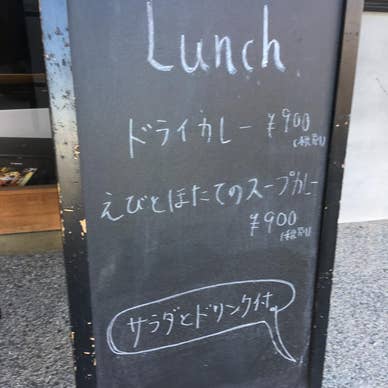 Lunch
ドライカレー ¥900
(税別)
えびとほたてのスープカレー
¥900
(税別)
サラダとドリンク付